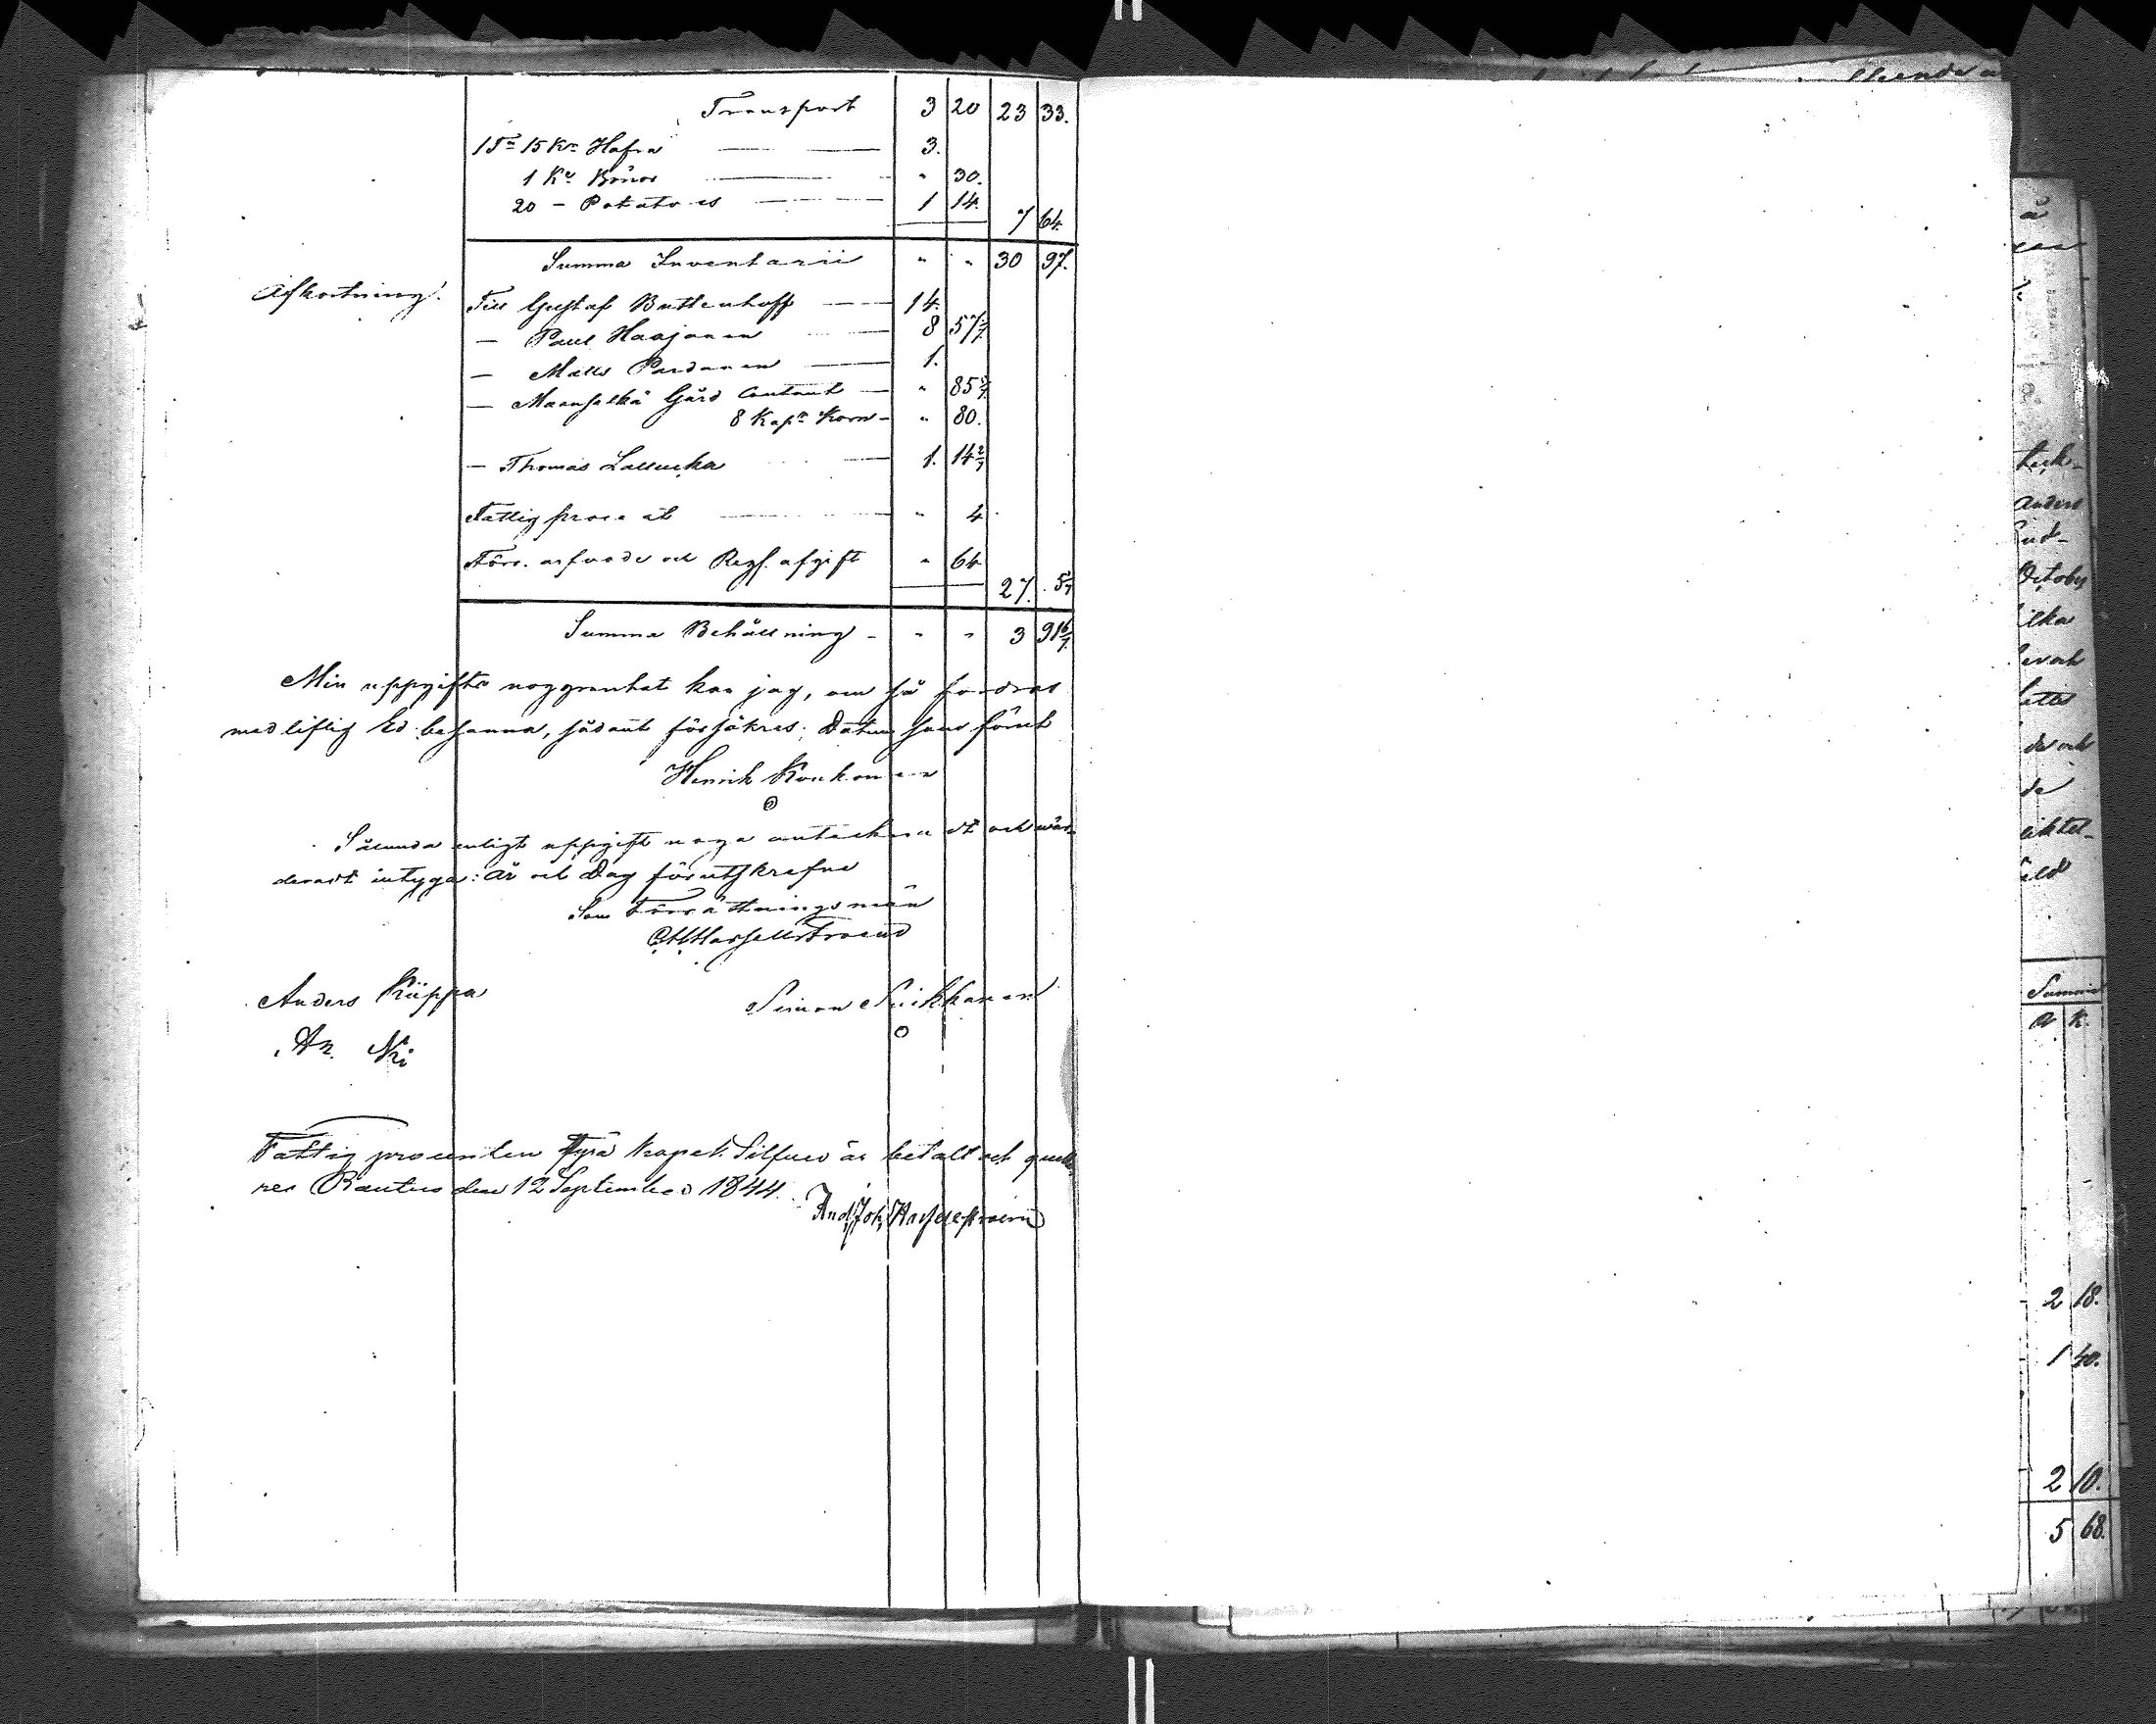 Transport 3 20 23 33.
1 Tna 15 Kr Hafra 3.
1 Kr Bönor " 30.
20 — Potates 1 14. 7 64.
Summa Inventarii " " 30 97.
Afkortning.
Till Gustaf Buttenhoff 14.
— Paul Haajanen 8 57 1/7
— Matts Pardanen 1.
— Maanselkä Gård Contant — " 85 5/7
8 Kapr Korn — " 80.
— Thomas Lallucka 1. 14 2/7
Fattig procent " 4
Förr. arfvode och Regs. afgift " 64
27. 5 1/7
Summa Behållning — " " 3 91 6/7
Min uppgifts noggranhet kan jag, om så fordras
med liflig Ed besanna, sådant försäkras; Datum som förut
Henrik Koukonen
Sålunda enligt uppgift noga antecknadt och vär-
deradt intyga: År och Dag förutskrefne
Som Förrättningsmän
Anders Kiippa
Simon Suikkanen
Fattig procenten fyra kopek Silfver är betalt och quitte-
res Rautus den 12 September 1844.
And. Joh. Hasselstroem
å
teck-
Anders
October
ilka
och
de
Summa
R K.
2 18.
1 40.
2 10.
5 68.